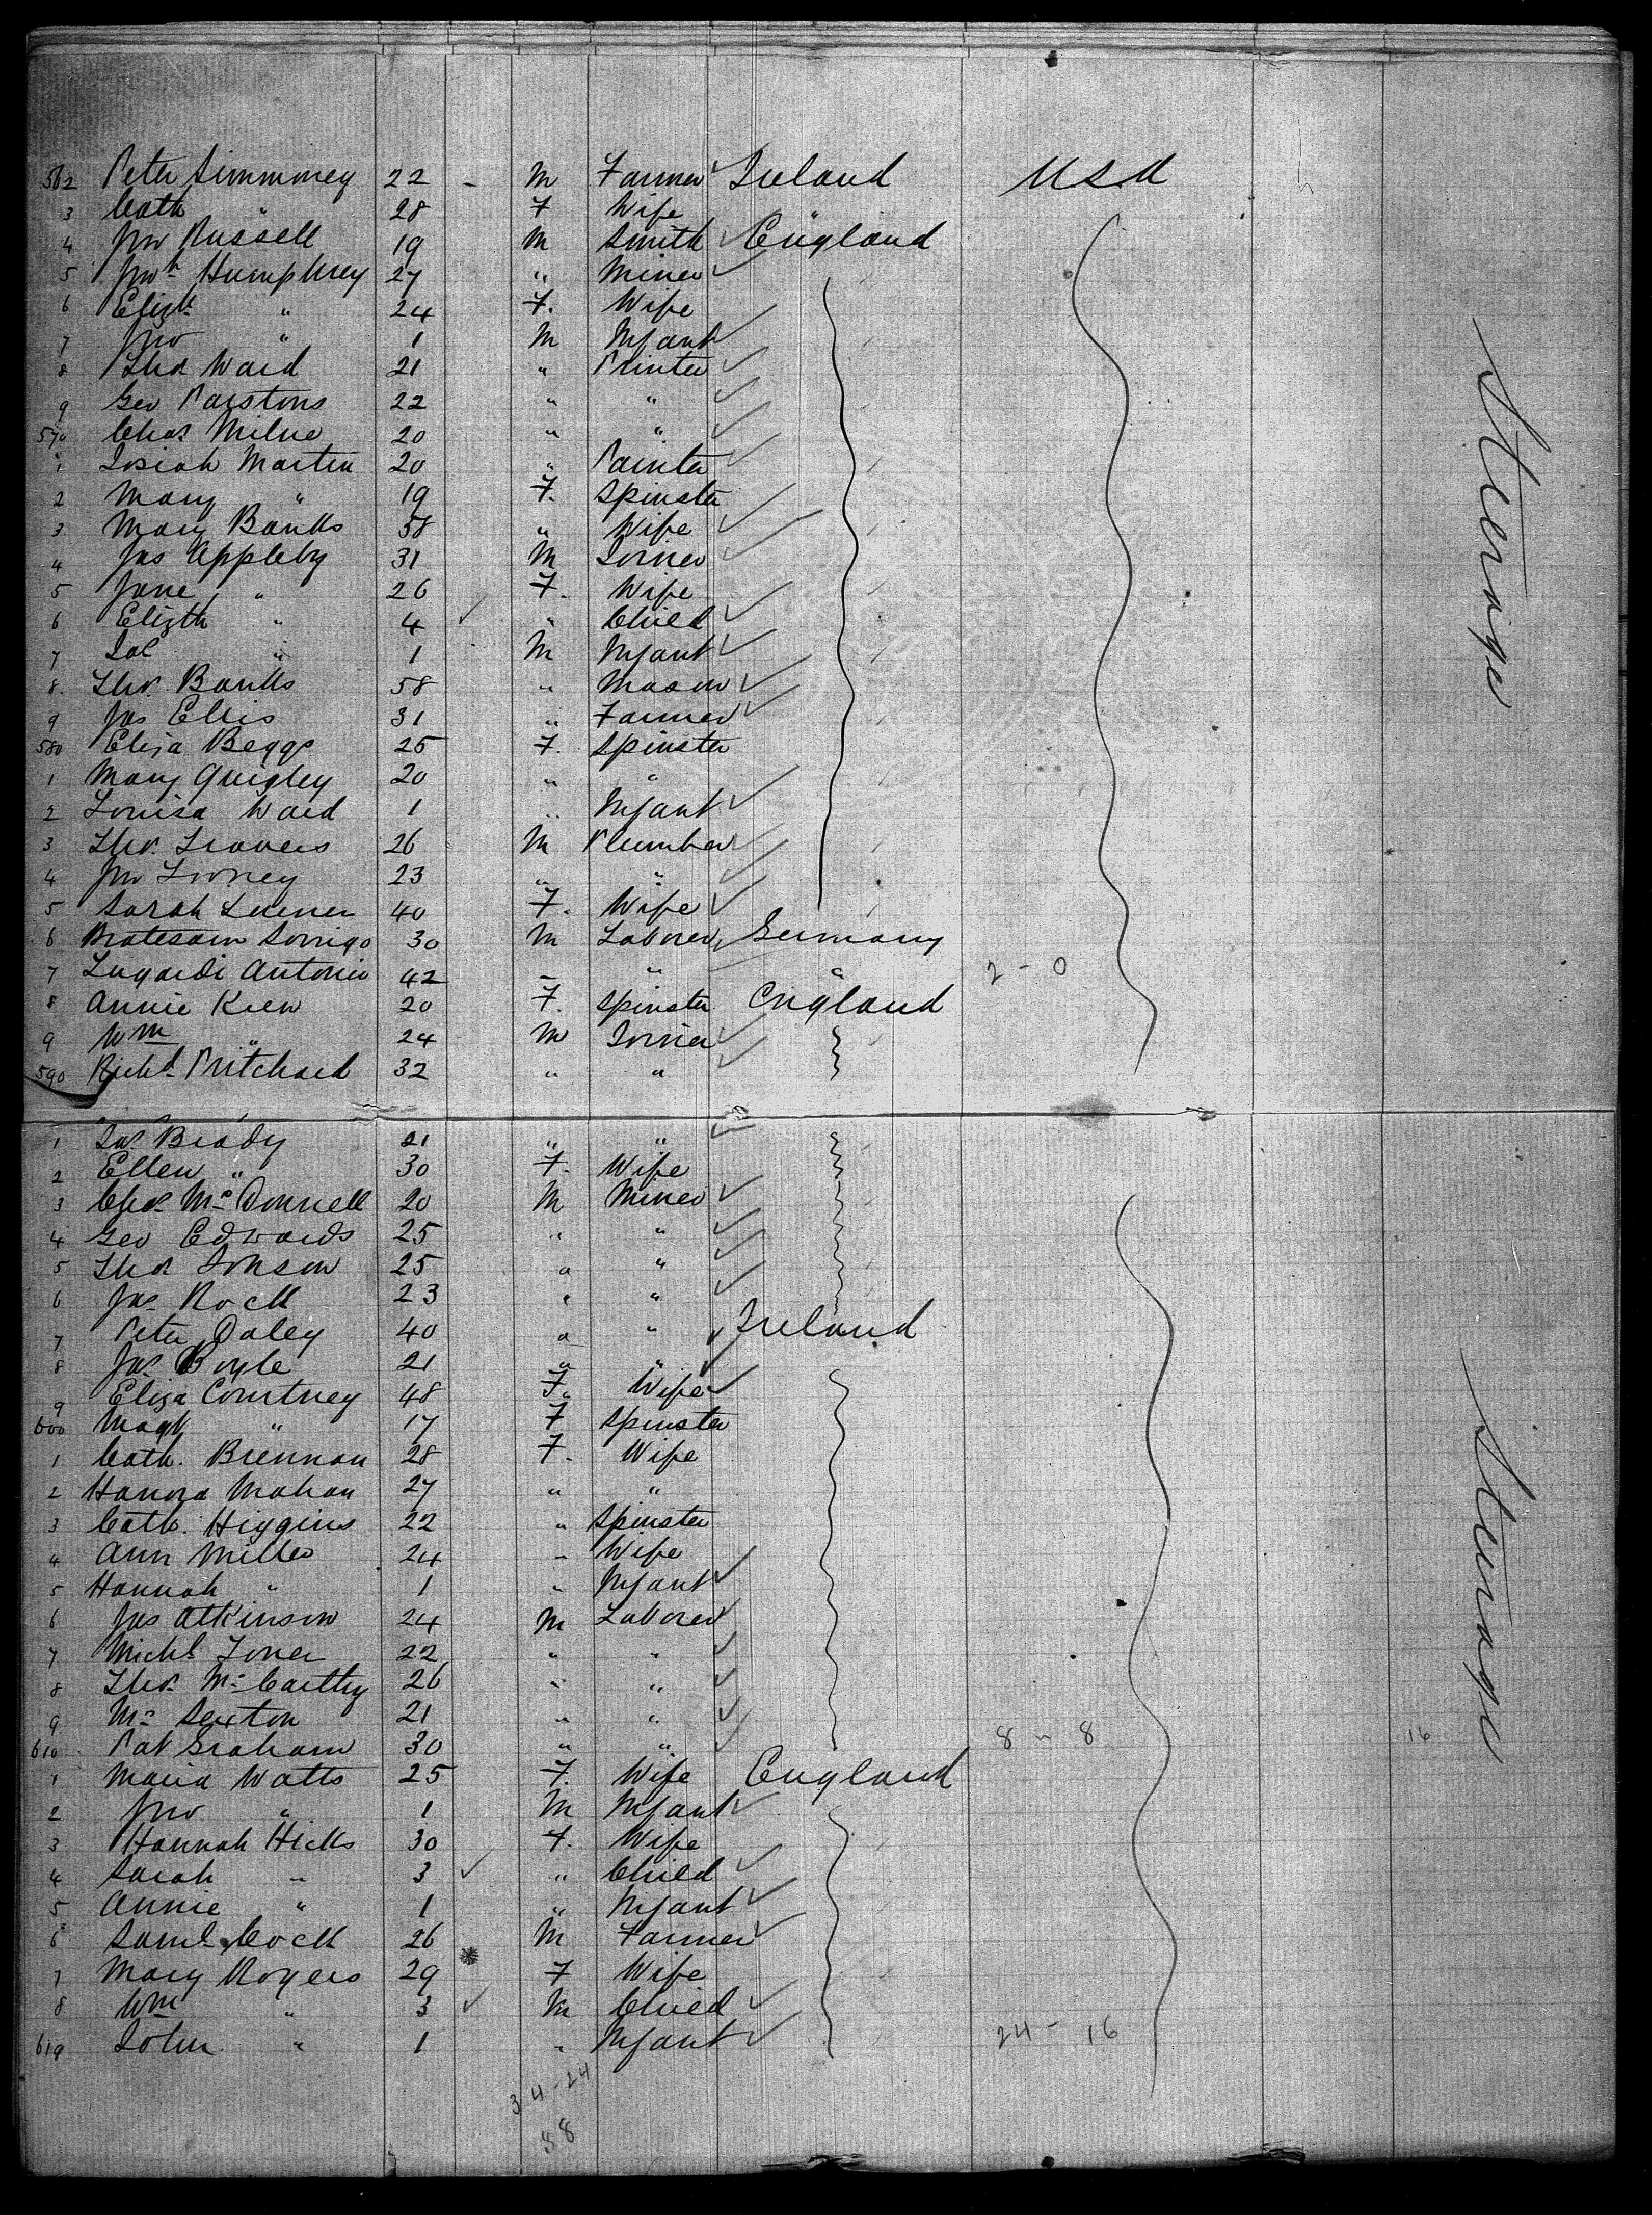 562 Peter Simmoney 22 - M Farmer Ireland USA
3 Cath " 28 F Wife "
4 Jno Russell 19 M Smith England
5 Jno Humphrey 27 " Miner
6 Elizth " 24 F. Wife
7 Jno " 1 M Infant
8 Thos Ward 21 " Printer
9 Geo 22 " "
570 Chas Milne 20 " "
1 Josiah Martin 20 " Painter
2 Mary " 19 F. Spinster
3 Mary Banks 58 " Wife
4 Jas Appleby 31 M Joiner
5 Jane " 26 F. Wife
6 Elizth " 4 " Child
7 " 1 M Infant
8 Thos. Banks 58 " Mason
9 Jas Ellis 31 " Farmer
580 Eliza Beggs 25 F. Spinster
1 Mary Quigley 20 " "
2 Louisa Ward 1 " Infant
3 Thos. Travers 26 M Plumber
4 Jno 23 " "
5 Sarah 40 F. Wife
6 30 M Laborer Germany
7 Antonio 42 " " " 2 - 0
8 Annie Kien 20 F. Spinster England
9 Wm " 24 M Joiner
590 Richd Pritchard 32 " "
1 Jas Brady 21 " "
2 Ellen " 30 F. Wife
3 Chas McDonnell 20 M Miner
4 Geo Edwards 25 " "
5 Thos Jonson 25 " "
6 Jas Rock 23 " "
7 Peter Daley 40 " " Ireland
8 Jas Boyle 21 " "
9 Eliza Courtney 48 F. Wife
600 Magt " 17 F Spinster
1 Cath. Brennan 28 F. Wife
2 Hanora Mahan 27 " "
3 Cath. Higgins 22 " Spinster
4 Ann Miller 24 " Wife
5 Hannah " 1 " Infant
6 Jas Atkinson 24 M Laborer
7 Michl 22 " "
8 Thos. McCarthy 26 " "
9 Sexton 21 " "
610 Pat Graham 30 " " 8 - 8 16
1 Maria Watts 25 F. Wife England
2 Jno " 1 M Infant
3 Hannah Hicks 30 F. Wife
4 Sarah " 3 " Child
5 Annie " 1 " Infant
6 Saml Cock 26 M Farmer
7 Mary Rogers 29 F Wife
8 Wm " 3 M Child
619 John " 1 " Infant 24 - 16
3 4 - 24
58
Steerage
Steerage